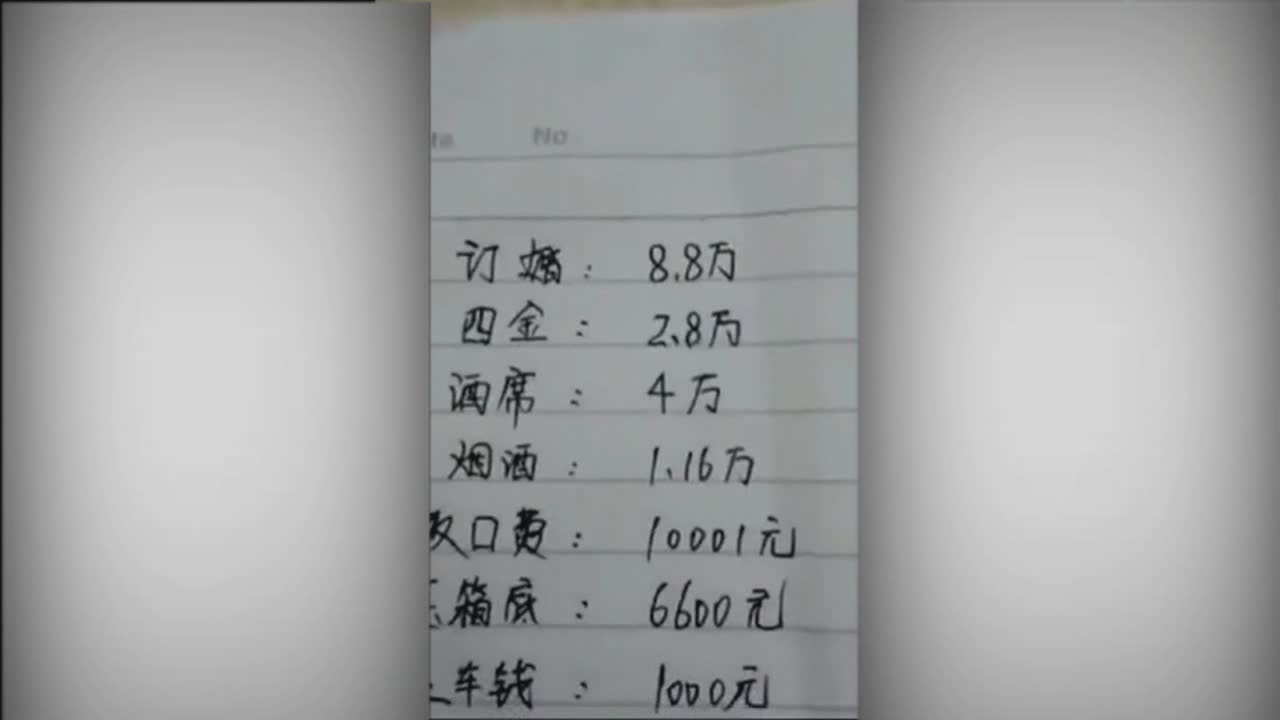 No
订婚: 8.8万
四金: 2.8万
酒席: 4万
烟酒: 1.16万
改口费: 10001元
压箱底: 6600元
上车钱: 1000元